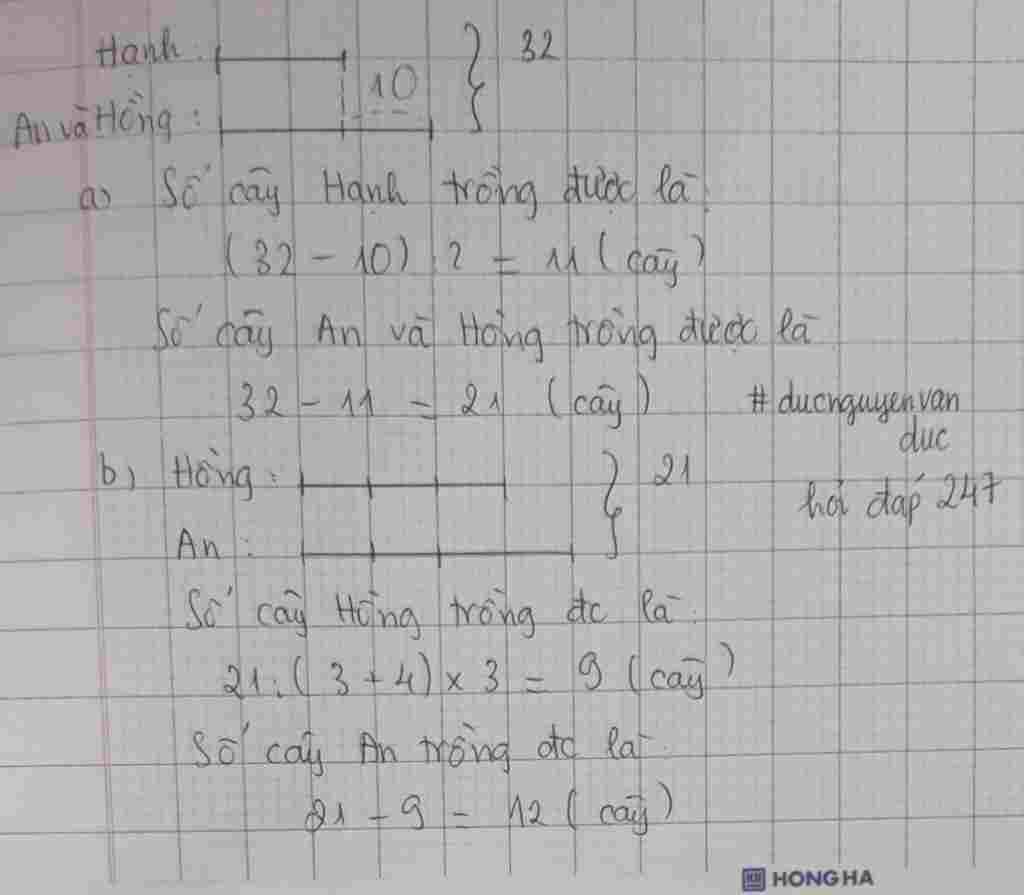 Hạnh :
10
} 32
An và Hồng :
a) Số cây Hạnh trồng được là:
(32 - 10) : 2 = 11 (cây)
Số cây An và Hồng trồng được là
32 - 11 = 21 (cây)
#ducnguyenvan
duc
b) Hồng :
} 21
hỏi đáp 247
An :
Số cây Hồng trồng đc là:
21 : (3 + 4) x 3 = 9 (cây)
Số cây An trồng đc là
21 - 9 = 12 (cây)
HONG HA